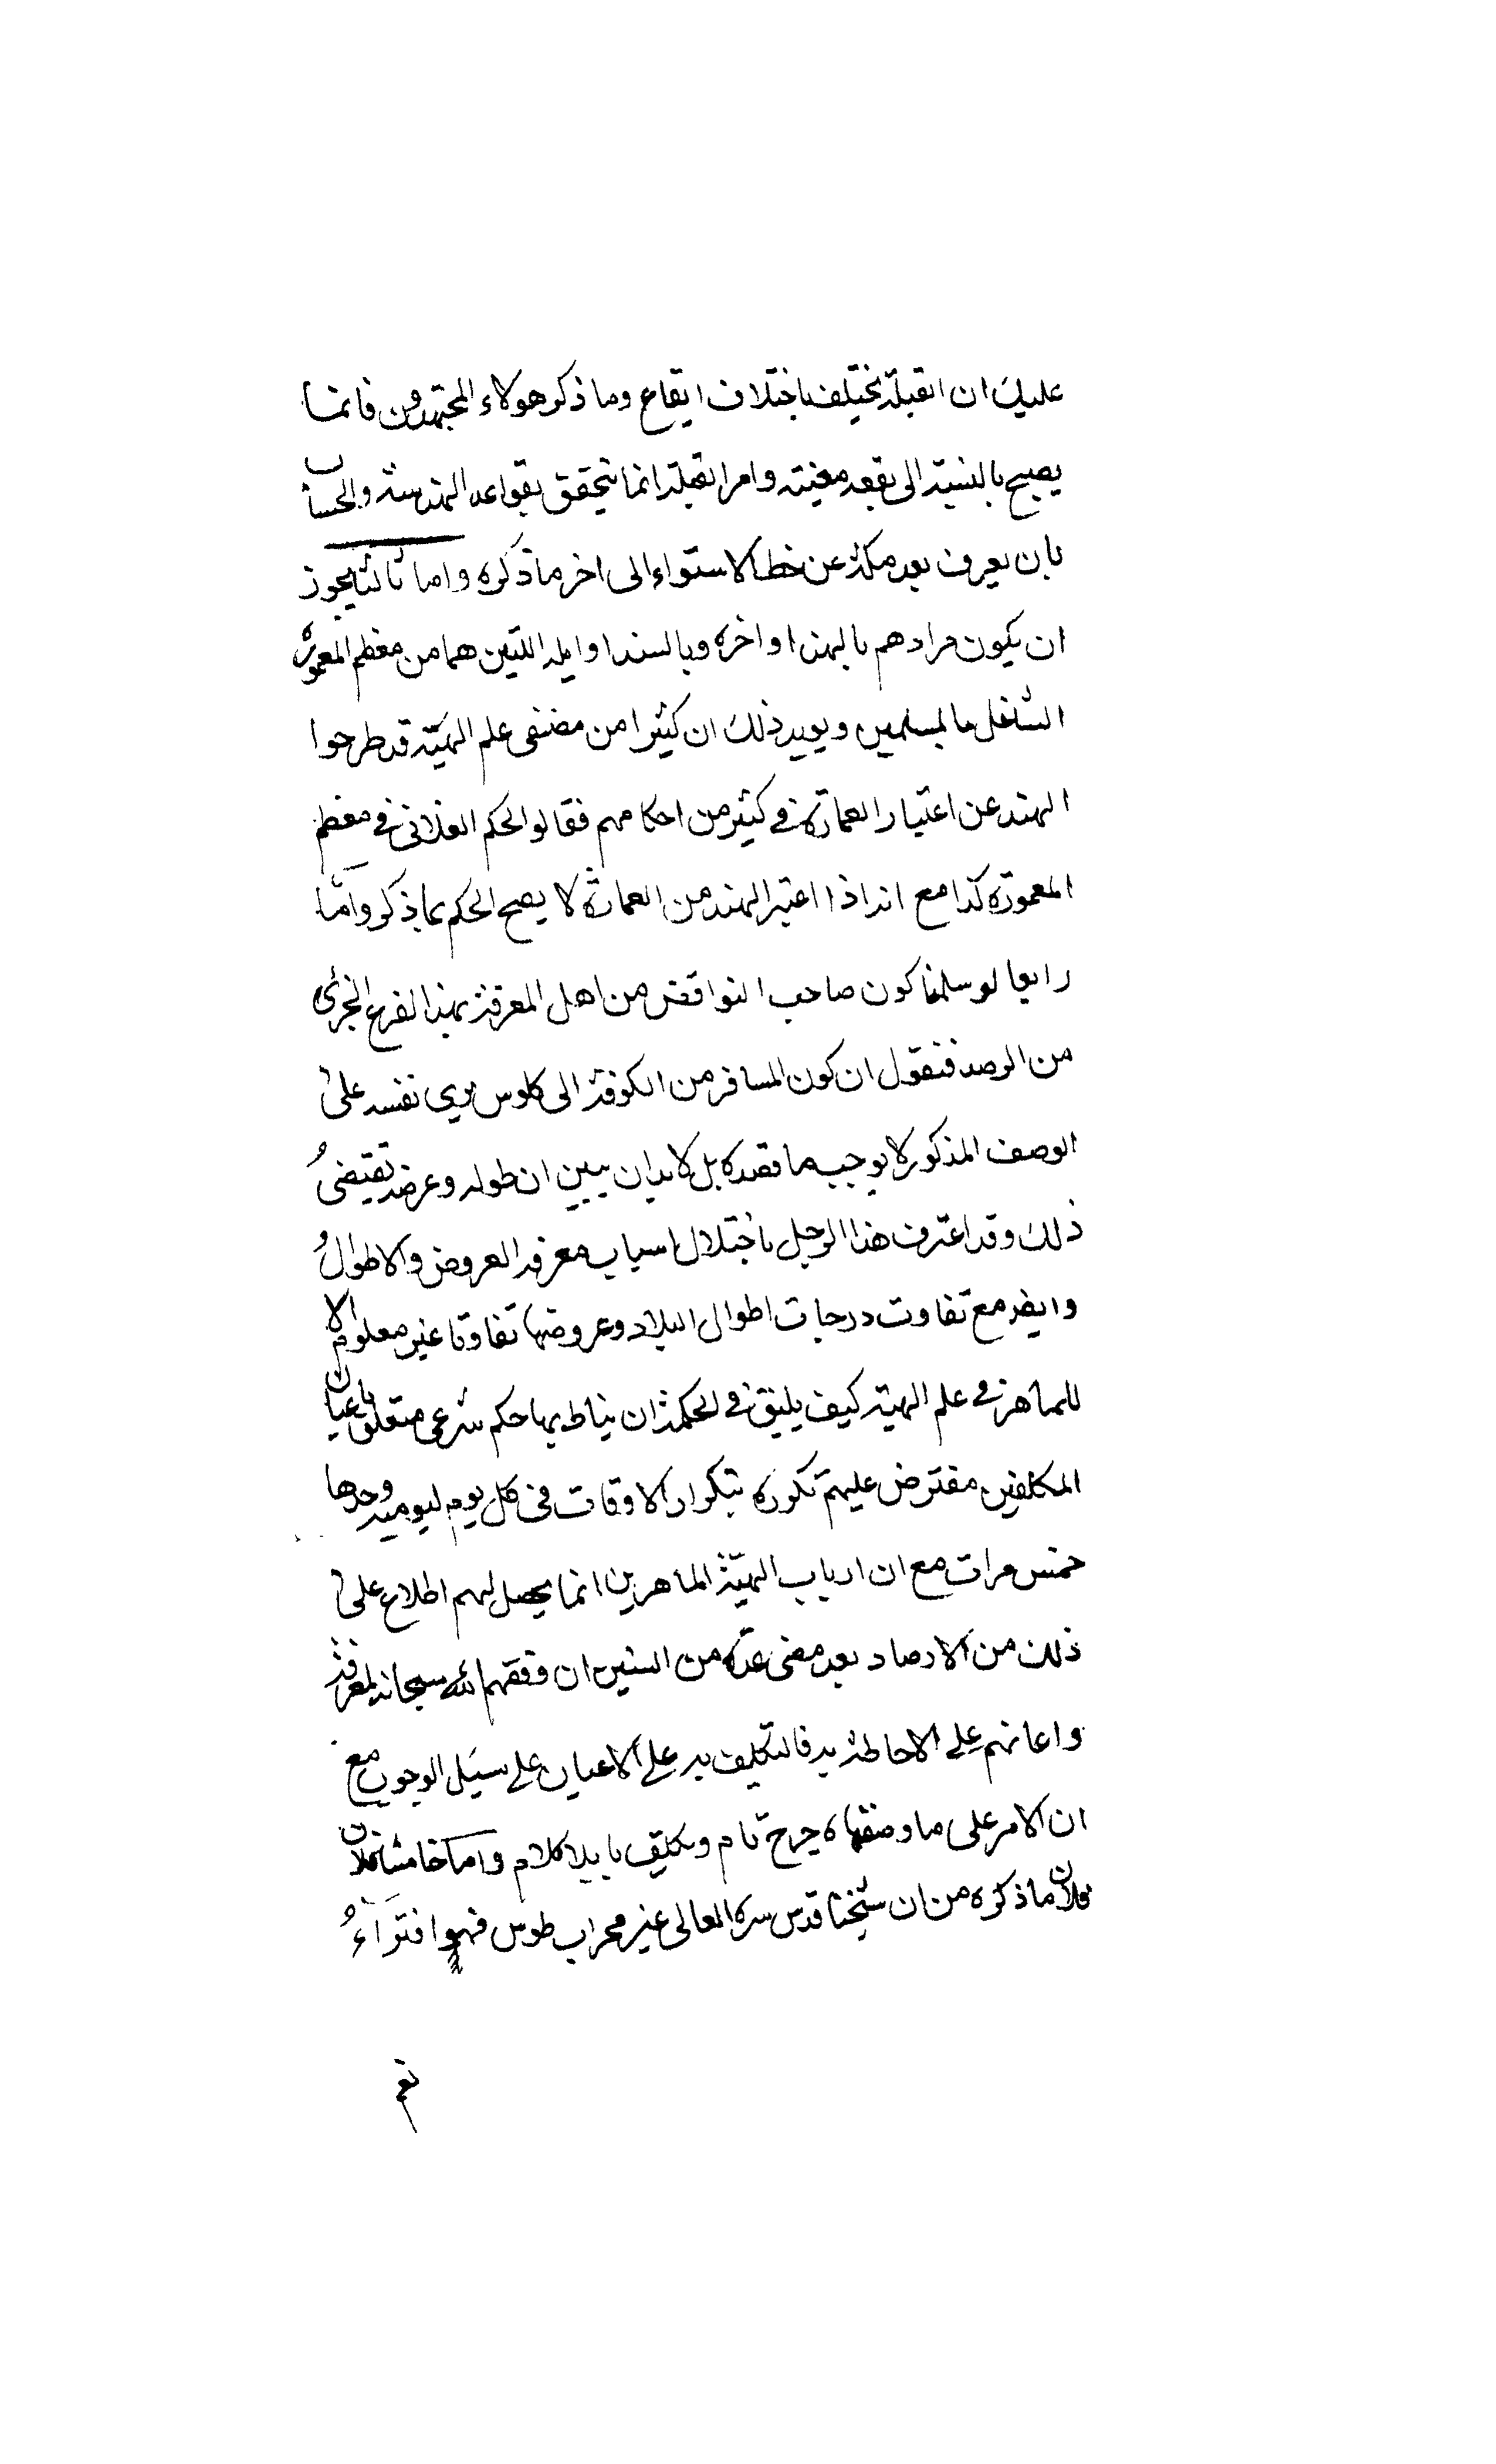 عليك ان القبلة تختلف باختلاف البقاع وما ذكر هولاء المجتهدون فانما
يصح بالنسبة الى بقعه معينه وامر القبلة انما يتحقق بقواعد الهندسة والحساب
بان يعرف بعد مكة عن خط الاستواء الى اخر ما ذكره واما ثالثا يجوز
ان يكون مرادهم بالهند اواخره وبالسند اوايله اللتين هما من معظم المعمورة
الشاغل بالمسلمين ويويد ذلك ان كثيرا من مصنفى علم الهيئة قد طرحوا
الهند عن اعتبار العمارة في كثير من احكامهم فقالوا الحكم الفلانى في معظم
المعمورة كذا مع انه اذا اعتبر الهند من العمارة لا يصح الحكم بما ذكر واما
رابعا لو سلمنا كون صاحب النواقض من اهل المعرفة بهذا الفرع الجزئى
من الرصد فنقول ان كون المسافر من الكوفة الى كلوس يرى نفسه على
الوصف المذكور لا يوجب ما قصده بل لابد ان يبين ان طوله وعرضه تقتضى
ذلك وقد اعترف هذا الرجل باختلال اسباب معرفة العروض والاطوال
وايضه مع تفاوت درجات اطوال البلاد وعروضها تفاوتا غير معلوم الا
للماهر في علم الهيئة كيف يليق في الحكمة ان يناط بها حكم شرعى متعلق باعيان
المكلفين مفترض عليهم تكوره بتكرار الاوقات فى كل يوم ليوميه وحدها
خمس مرات مع ان ارباب الهيئة الماهرين انما يحصل لهم اطلاع على
ذلك من الارصاد بعد مضى عدة من السنين ان وفقهم الله سبحانه لمعرفة
واعانهم على الاحاطة به فالتكليف به على الاعيان على سبيل الوجوب مع
ان الامر على ما وصفناه حرج تام وتكليف بلا كلام واما خامسا فلان
فلان ما ذكره من ان شيخنا قدس سره المعالى غير محراب طوس فهو افتراء
نعم